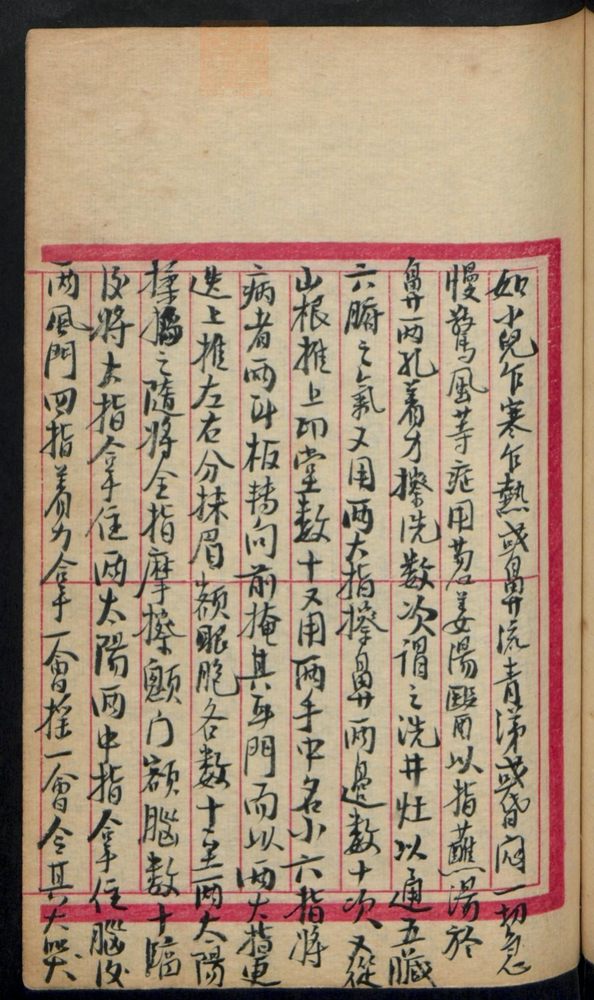 如小兒乍寒乍熱或鼻流青涕或昏悶一切急
慢驚風等症用葱姜湯醫用以指蘸湯於
鼻兩孔着力擦洗数次謂之洗井灶以通五臟
六腑之氣又用两大指擦鼻两邊数十次又從
山根推上印堂数十又用两手中名小六指將
病者两耳板轉向前掩其耳門而以两大指更
迭上推左右分抹眉額眼胞各数十至两太陽
揉搯之隨將全指摩擦顖门額腦数十臨
後將大指拿住两太陽两中指拿住腦後
两風門四指着力拿一會摇一會令其大哭